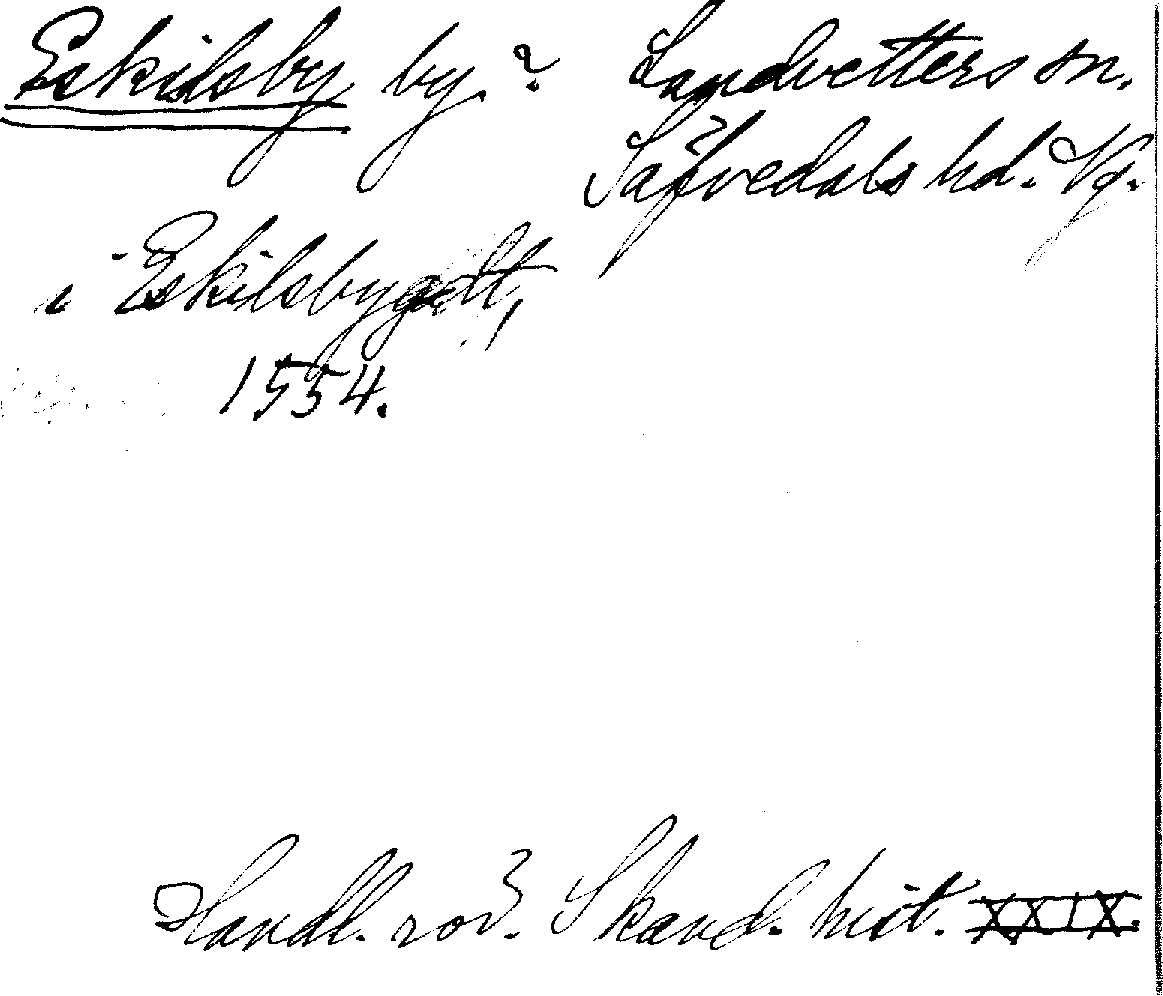 Eskilsby by? Landvetters sn.
Säfvedals hd. Vg.
i Eskilsbygdt,
1554.
Handl. rör. Skand. hist. XXIX.